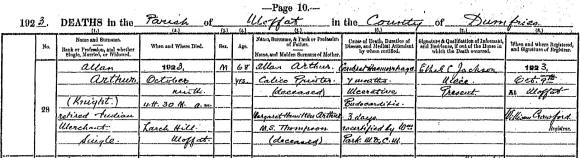 —Page 10.—
1923. DEATHS in the Parish of Moffat in the County of Dumfries
(1.) (2.) (3.) (4.) (5.) (6.) (7.) (8.)
No. Name and Surname. Rank or Profession, and whether Single, Married, or Widowed.
When and Where Died.
Sex.
Age.
Name, Surname, & Rank or Profession of Father. Name, and Maiden Surname of Mother.
Cause of Death, Duration of Disease, and Medical Attendant by whom certified.
Signature & Qualification of Informant, and Residence, if out of the House in which the Death occurred.
When and where Registered, and Signature of Registrar.
28
Allan
Arthur
(Knight)
retired Indian
Merchant
Single
1923,
October
ninth
4h. 30m. a.m.
Larch Hill
Moffat
M
68
yrs.
Allan Arthur
Calico Printer
(deceased)
Margaret Hamilton Arthur
M.S. Thompson
(deceased)
Cerebral Haemorrhage
7 months
Ulcerative
Endocarditis
3 days
As certified by Wm
Park M.B., C.M.
Ethel C. Jackson
Niece
Present
1923,
Oct. 9th
At Moffat
William Crawford
Registrar.